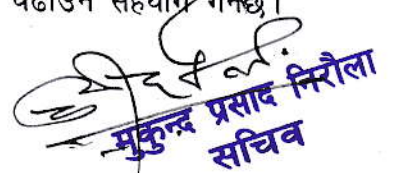 पढाउन सहयोग गर्नेछ।
मुकुन्द प्रसाद निरौला
सचिव